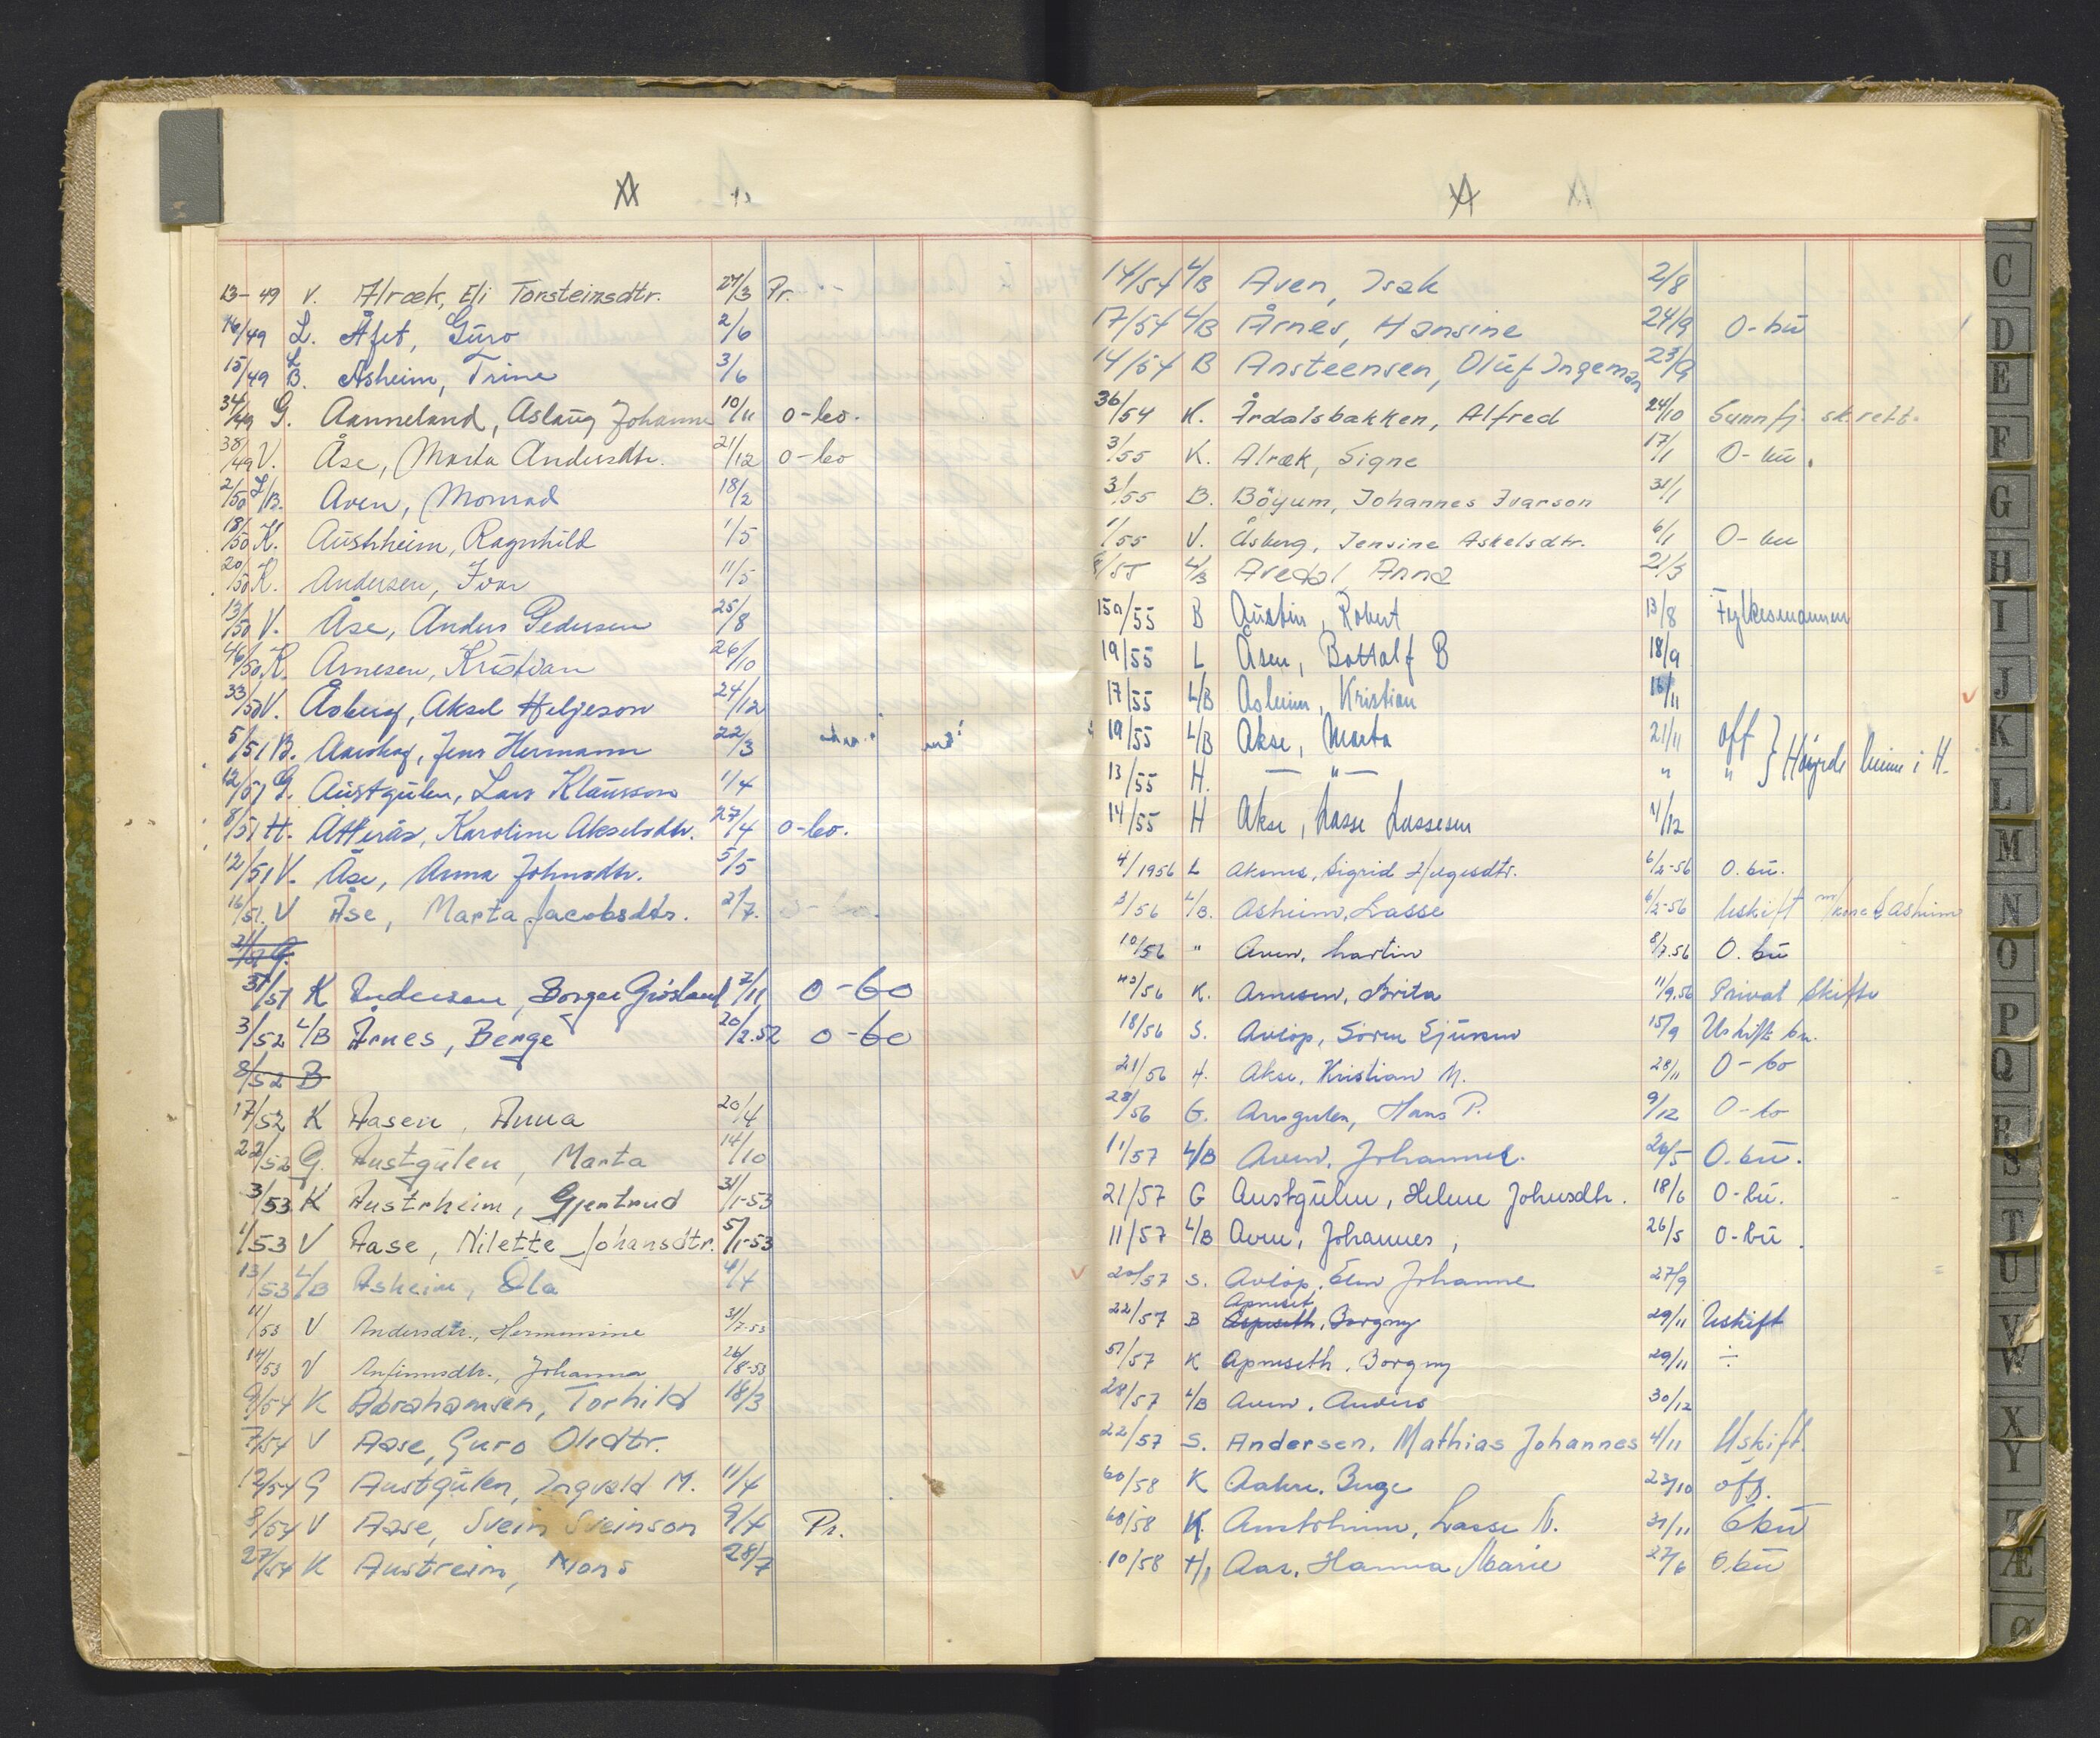 A
13-49 V. Alræk, Eli Torsteinsdtr. 24/3 Pr.
16/49 L. Åfet, Guro 2/6
15/49 L/B. Asheim, Trine 3/6
34/49 G. Aanneland, Aslaug Johanne 10/11 o-bo.
38/49 V. Åse, Marta Andersdtr. 21/12 o-bo
2/50 L/B. Aven, Monrad 18/2
18/50 K. Austrheim, Ragnhild 1/5
20/50 K. Andersen, Ivar 11/5
13/50 V. Åse, Anders Pedersen 25/8
46/50 K. Arnesen, Kristian 26/10
33/50 V. Åsberg, Aksel Heljeson 24/12
5/51 B. Aarskog, Jens Hermann 22/3
12/51 G. Austgulen, Lars Klausson 1/4
8/51 H. Atterås, Karoline Akselsdtr. 27/4 o-bo.
12/51 V. Åse, Anna Johnsdtr. 5/5
16/51. V Åse, Marta Jacobsdtr. 2/7.
21/51 G.
31/51 K Andersen, Borger Grösland 2/11 o-bo
3/52 L/B Årnes, Berge 20/2.52 o-bo
8/52 B
17/52 K Aasen, Anna 20/4
22/52 G. Austgulen, Marta 14/10
3/53 K Austrheim, Gjertrud 31/1-53
1/53 V Aase, Nilette Johansdtr. 5/1-53
13/53 L/B Asheim, Ola 4/4
11/53 V Andersdtr., Hermansine 31/7-53
14/53 V Anfinnsdtr., Johanna 26/8-53
9/54 K Abrahamsen, Torhild 18/3
7/54 V Aase, Guro Olidtr.
12/54 G Austgulen, Ingvald M. 11/4
8/54 V Aase, Svein Sveinson 9/4 Pr.
27/54 K Austreim, Mons 28/7
A
14/54 L/B Aven, Isak 2/8
17/54 L/B Årnes, Hansine 24/9 O-bu
14/54 B Ansteensen, Oluf Ingeman 23/9
36/54 K. Årdalsbakken, Alfred 24/10 Sunnfj. sk.rett.
3/55 K. Alræk, Signe 17/1 O-bu.
3/55 B. Böyum, Johannes Ivarson 31/1
1/55 V. Åsberg, Jensine Askelsdtr. 6/1 O-bu
8/55 L/B Avedal Anna 21/3
15a/55 B Austin, Robert 13/8 Fylkesmannen
19/55 L Åsen, Bottolf B 18/9
17/55 L/B Asheim, Kristian 16/11
19/55 L/B Akse, Marta 21/11 off
13/55 H. — " — " "
} Høyrde heime i H.
14/55 H Akse, Lasse Lassesen 4/12
4/1956 L Aksnes, Sigrid Helgesdtr. 6/2-56 O.bu.
3/56 L/B. Asheim, Lasse 6/2-56 Uskift m/kone
10/56 " Aven, Martin 8/7.56 O.bu
43/56 K. Arnesen, Brita 11/9.56 Privat skifte
18/56 S. Avlöp, Sören Sjursen 15/9 Uskift bu.
21/56 H. Akse, Kristian N. 28/11 O-bo
28/56 G. Arngulen, Hans P. 9/12 O-bo
11/57 L/B Aven, Johannes. 26/5 O.bu.
21/57 G Austgulen, Helene Johnsdtr. 18/6 O-bu.
11/57 L/B Aven, Johannes, 26/5 O-bu.
20/57 S. Avlöp, Johanne 27/9
22/57 B Apneset, Borgny 29/11 Uskift
51/57 K Apneseth, Borgny 29/11 ÷
28/57 L/B Aven, Anders 30/12
22/57 S. Andersen, Mathias Johannes 4/11 Uskift.
60/58 K Aakre, Berge 23/10 off.
68/58 K. Austrheim, Lasse N. 31/11 Obu
10/58 H, Aar, Hanna Marie 27/6 Obu
C
D
E
F
G
H
I
J
K
L
M
N
O
P
Q
R
S
T
U
V
W
X
Y
Z
Æ
Ø